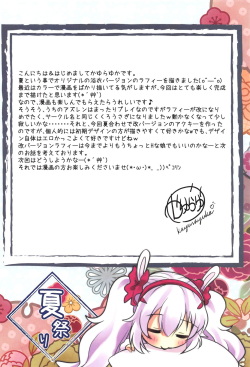 こんにちは&はじめましてかゆらゆかです。
夏という事でオリジナルの浴衣バージョンのラフィーを描きました(o￣ー￣o)
最近はカラーで漫画をばかり描いてる気がしますが、今回はとても楽しく完成
まで描けたと思います(*´艸`)
なので、漫画も楽しんでもらえたらうれしいです♪
そうそう、うちのアズレンはまったりプレイなのですがラフィーが改になり
めでたく、サークル名と同じくくろうさぎになりましたw動かなくなって少し
寂しいかな‥‥‥‥それと、今回夏コミ合わせで改バージョンのアクキーを作った
のですが、個人的には初期デザインの方が描きやすくて好きかなwでも、デザイ
ン自体はエロかっこよくて好きですけどねw
改バージョンラフィーは今までよりもうちょっとH な娘でもいいのかなーと次
のお話を考えております。
次回はどうしようかなー(*´艸`)
それでは漫画の方お楽しみくださいませ(*・ω・)*_ _))ﾍﾟｺﾘﾝ
夏祭り